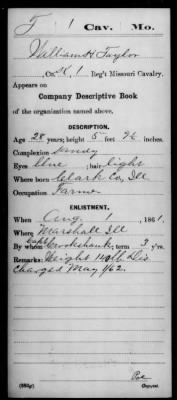 T 1 Cav. Mo.
William H Taylor
, Co. K, 1 Reg't Missouri Cavalry.
Appears on
Company Descriptive Book
of the organization named above.
DESCRIPTION.
Age 28 years; height 5 feet 9½ inches.
Complexion sandy
Eyes blue ; hair light
Where born Clark Co, Ill
Occupation Farmer
ENLISTMENT.
When Aug. 1 , 1861.
Where Marshall Ill
By whom Capt Crookshank; term 3 y'rs.
Remarks: Weight 140 lb Dis
Charged May 1/62.
(383g) Copyist.